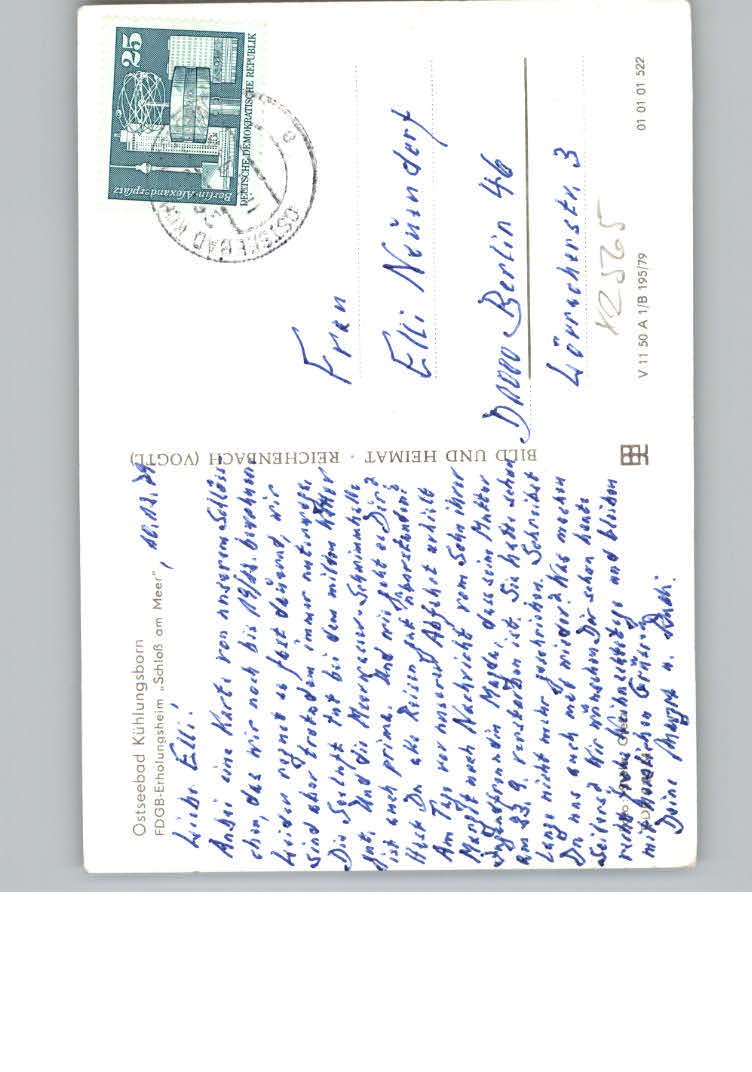 Ostseebad Kühlungsborn
FDGB-Erholungsheim „Schloß am Meer", 10.12.79
Liebe Elli!
Anbei eine Karte von unserem Schlöss-
chen, das wir noch bis 19/12. bewohnen
Leider regnet es fast dauernd, wir
sind aber trotzdem immer unterwegs.
Die Seeluft tut bei dem milden Wetter
gut. Und die Meerwasser-Schwimmhalle
ist auch prima. Und wie geht es Dir?
Hast Du alle Reisen gut überstanden?
Am Tage vor unserer Abfahrt erhielt
Margot noch Nachricht vom Sohn ihrer
Jugendfreundin Magda, dass seine Mutter
am 23.9. verstorben ist. Sie hatte schon
lange nicht mehr geschrieben. Schreibst
Du uns auch mal wieder? Was machen
Wir wünschen Dir schon heute
recht frohe Weihnachtstage und bleiben
mit herzlichen Grüssen
Deine Margot u. Rudi.
BILD UND HEIMAT · REICHENBACH (VOGTL)
25
Berlin-Alexanderplatz
DEUTSCHE DEMOKRATISCHE REPUBLIK
OSTSEEBAD
Frau
Elli Neumdorf
D1000 Berlin 46
Lörracherstr. 3
V 11 50 A 1/B 195/79
01 01 01 522